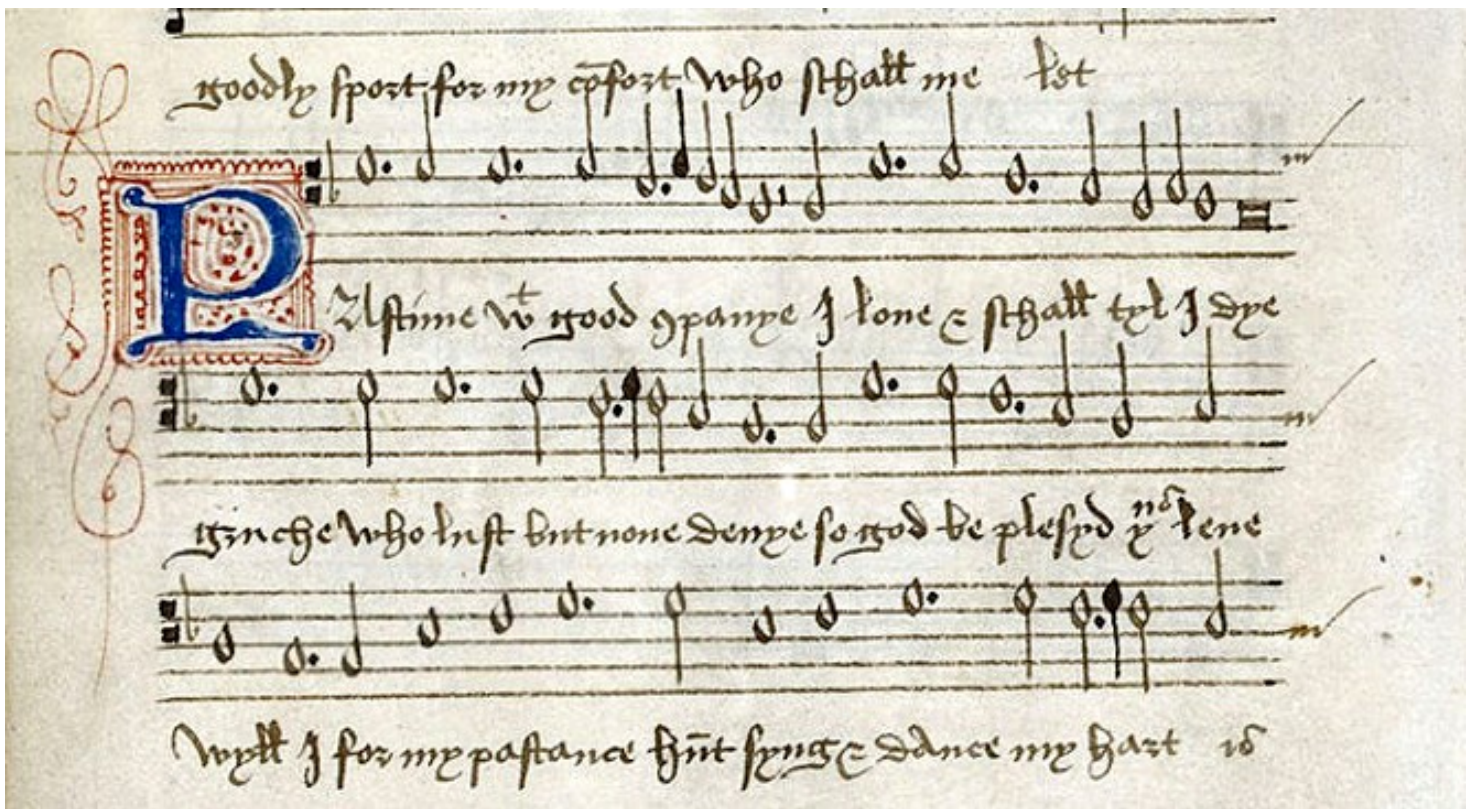 goodly sport for my cōfort who schall me let
PAstime wt good ꝯpanye I love & schall tyl I dye
gruche who lust but none denye so god be plesyd yus leve
wyll I for my pastance hūt syng & dance my hart is